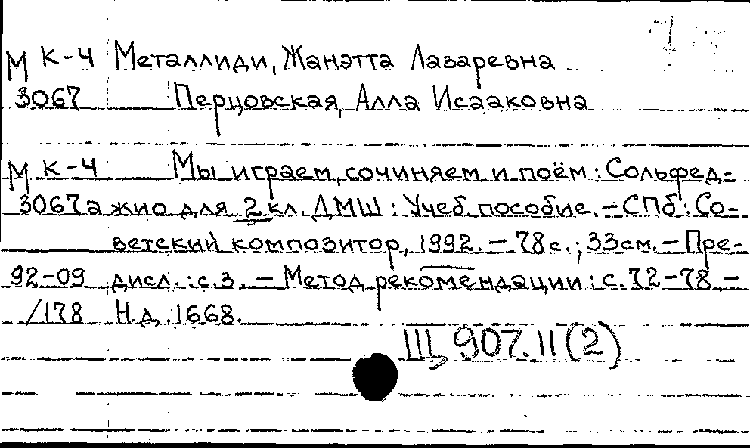 М К-4 Металлиди, Жанэтта Лазаревна
3067 Перцовская, Алла Исааковна
М К-4 Мы играем, сочиняем и поём : Сольфед-
3067а жио для 2 кл. ДМШ : Учеб. пособие. – СПб : Со-
ветский композитор, 1992. – 78 с. ; 33 см. – Пре-
92-09 дисл. : с. 3. – Метод. рекомендации : с. 72-78. –
/178 Н.д. 1668.
Щ 907.11(2)